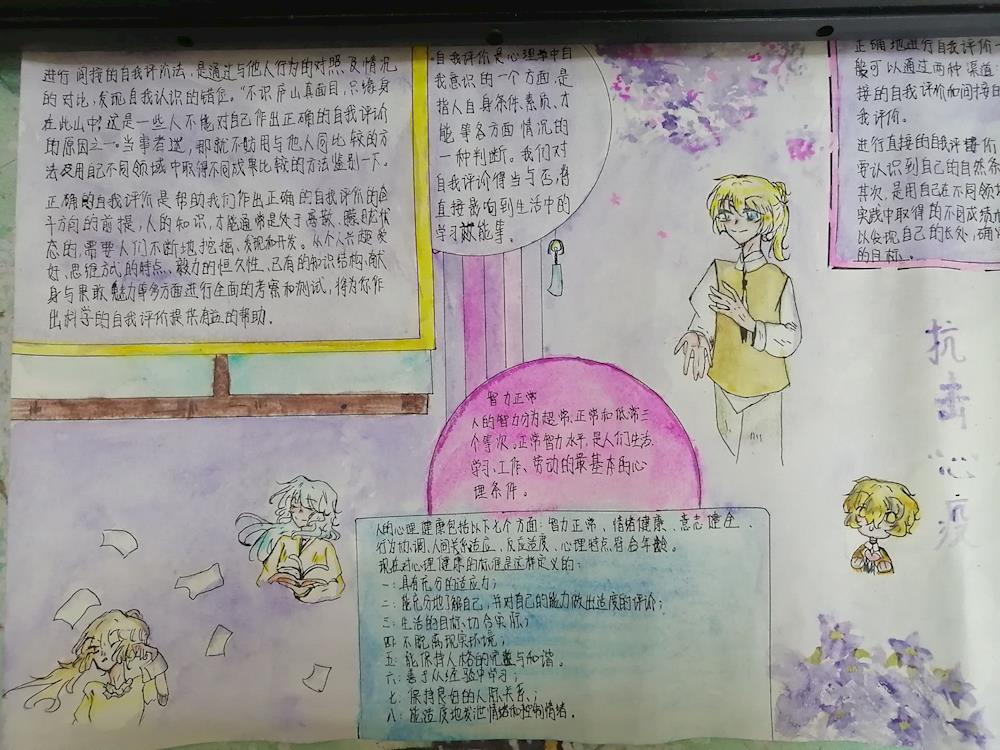 进行间接的自我评价法，是通过与他人行为的对照及情况
的对比，发现自我认识的错位。“不识庐山真面目，只缘身
在此山中”这是一些人不能对自己作出正确的自我评论
的原因之一。当事者迷，那就不妨用与他人同比较的方
法及用自己不同领域中取得不同成果比较的方法鉴别一下。
正确的自我评价是帮助我们作出正确的自我评价的
方向的前提，人的知识，才能通常是处于离散、朦胧状
态的，需要人们不断地挖掘、发现和开发。从个人兴趣爱
好、思维方式的特点、毅力的恒久性、已有的知识结构、献
身与果敢魅力等多方面进行全面的考察和测试，将为你作
出科学的自我评价提供有益的帮助。
自我评价是心理学中自
我意识的一个方面，是
指人自身条件、素质、才
能等各方面情况的
一种判断。我们对
自我评论得当与否，将
直接影响到生活中的
学习效能等。
正确地进行自我评价
能可以通过两种渠道：
接的自我评价和间接的
我评价。
进行直接的自我评价
要认识到自己的自然条
其次，是用自己在不同领
实践中取得的不同成绩
以发现自己的长处，确
的目标。
抗
击
心
疫
智力正常
人的智力分为超常、正常和低常三
个等次。正常智力水平，是人们生活、
学习、工作、劳动的最基本的心
理条件。
人的心理健康包括以下七个方面：智力正常、情绪健康、意志健全、
行为协调、人间关系适应、反应适度、心理特点符合年龄。
现在对心理健康的标准是这样定义的：
一：具有充分的适应力；
二：能充分地了解自己，并对自己的能力做出适度的评论；
三：生活的目标、切合实际；
四：不脱离现实环境；
五：能保持人格的完整与和谐。
六：善于从经验中学习；
七：保持良好的人际关系；
八：能适度地发泄情绪和控制情绪．